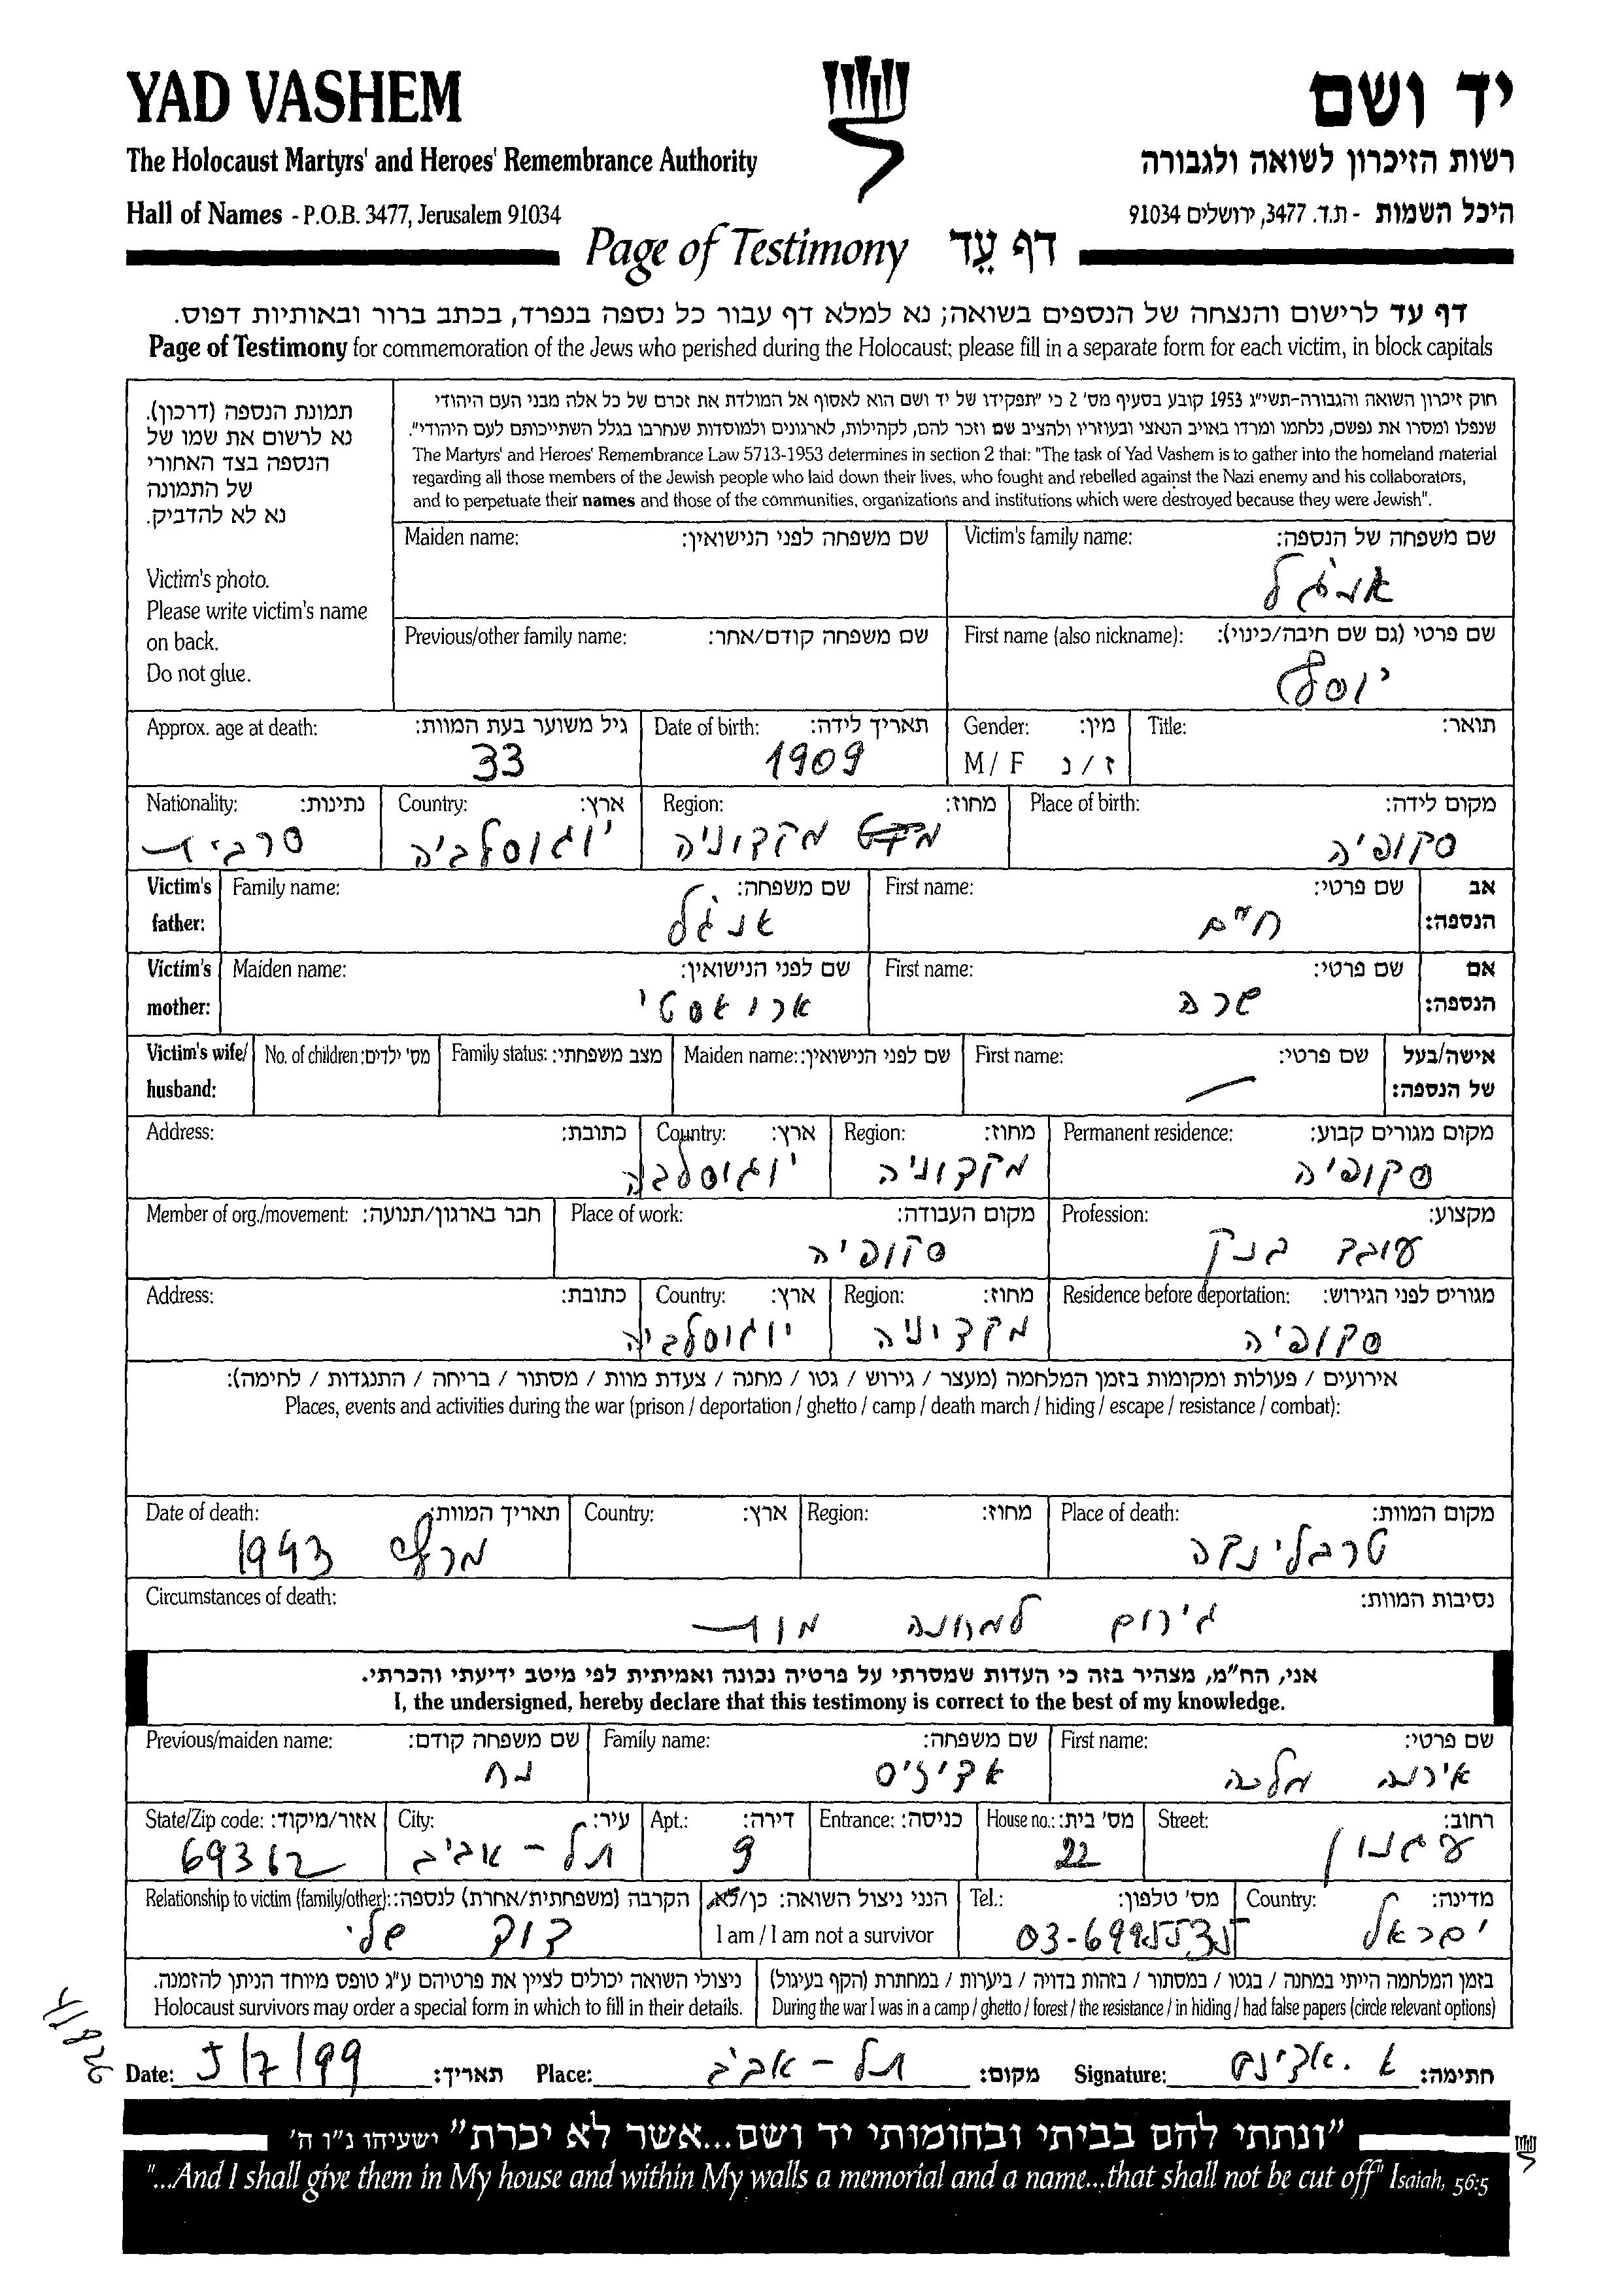 YAD VASHEM
יד ושם
The Holocaust Martyrs' and Heroes' Remembrance Authority
רשות הזיכרון לשואה ולגבורה
Hall of Names - P.O.B. 3477, Jerusalem 91034
היכל השמות - ת.ד. 3477, ירושלים 91034
Page of Testimony דף עֵד
דף עד לרישום והנצחה של הנספים בשואה; נא למלא דף עבור כל נספה בנפרד, בכתב ברור ובאותיות דפוס.
Page of Testimony for commemoration of the Jews who perished during the Holocaust; please fill in a separate form for each victim, in block capitals
תמונת הנספה (דרכון).
נא לרשום את שמו של
הנספה בצד האחורי
של התמונה
נא לא להדביק.
Victim's photo.
Please write victim's name
on back.
Do not glue.
חוק זיכרון השואה והגבורה-תשי"ג 1953 קובע בסעיף מס' 2 כי "תפקידו של יד ושם הוא לאסוף אל המולדת את זכרם של כל אלה מבני העם היהודי
שנפלו ומסרו את נפשם, נלחמו ומרדו באויב הנאצי ובעוזריו ולהציב שם וזכר להם, לקהילות, לארגונים ולמוסדות שנחרבו בגלל השתייכותם לעם היהודי".
The Martyrs' and Heroes' Remembrance Law 5713-1953 determines in section 2 that: "The task of Yad Vashem is to gather into the homeland material
regarding all those members of the Jewish people who laid down their lives, who fought and rebelled against the Nazi enemy and his collaborators,
and to perpetuate their names and those of the communities, organizations and institutions which were destroyed because they were Jewish".
Victim's family name: שם משפחה של הנספה:
אנג'ל
Maiden name: שם משפחה לפני הנישואין:
First name (also nickname): שם פרטי (גם שם חיבה/כינוי):
יוסף
Previous/other family name: שם משפחה קודם/אחר:
Title: תואר:
Gender: מין:
M / F ז / נ
Date of birth: תאריך לידה:
1909
Approx. age at death: גיל משוער בעת המוות:
33
Place of birth: מקום לידה:
סקופיה
Region: מחוז:
מקדוניה
Country: ארץ:
יוגוסלביה
Nationality: נתינות:
סרבית
Victim's father: אב הנספה:
First name: שם פרטי:
חיים
Family name: שם משפחה:
אנג'ל
Victim's mother: אם הנספה:
First name: שם פרטי:
שרה
Maiden name: שם לפני הנישואין:
ארואסטי
Victim's wife/ husband: אישה/בעל של הנספה:
First name: שם פרטי:
Maiden name: שם לפני הנישואין:
Family status: מצב משפחתי:
No. of children: מס' ילדים:
Permanent residence: מקום מגורים קבוע:
סקופיה
Region: מחוז:
מקדוניה
Country: ארץ:
יוגוסלביה
Address: כתובת:
Profession: מקצוע:
עובד בנק
Place of work: מקום העבודה:
סקופיה
Member of org./movement: חבר בארגון/תנועה:
Residence before deportation: מגורים לפני הגירוש:
סקופיה
Region: מחוז:
מקדוניה
Country: ארץ:
יוגוסלביה
Address: כתובת:
אירועים / פעולות ומקומות בזמן המלחמה (מעצר / גירוש / גטו / מחנה / צעדת מוות / מסתור / בריחה / התנגדות / לחימה):
Places, events and activities during the war (prison / deportation / ghetto / camp / death march / hiding / escape / resistance / combat):
Place of death: מקום המוות:
טרבלינקה
Region: מחוז:
Country: ארץ:
Date of death: תאריך המוות:
מרץ 1943
Circumstances of death: נסיבות המוות:
גירוש למחנה מוות
אני, הח"מ, מצהיר בזה כי העדות שמסרתי על פרטיה נכונה ואמיתית לפי מיטב ידיעתי והכרתי.
I, the undersigned, hereby declare that this testimony is correct to the best of my knowledge.
First name: שם פרטי:
אירנה מלכה
Family name: שם משפחה:
אדיז'ס
Previous/maiden name: שם משפחה קודם:
נח
Street: רחוב:
עגנון
House no.: מס' בית:
22
Entrance: כניסה:
Apt.: דירה:
9
City: עיר:
תל - אביב
State/Zip code: אזור/מיקוד:
69362
Country: מדינה:
ישראל
Tel.: מס' טלפון:
הנני ניצול השואה: כן/לא
I am / I am not a survivor
Relationship to victim (family/other): הקרבה (משפחתית/אחרת) לנספה:
דוד שלי
בזמן המלחמה הייתי במחנה / בגטו / במסתור / בזהות בדויה / ביערות / במחתרת (הקף בעיגול)
During the war I was in a camp / ghetto / forest / the resistance / in hiding / had false papers (circle relevant options)
ניצולי השואה יכולים לציין את פרטיהם ע"ג טופס מיוחד הניתן להזמנה.
Holocaust survivors may order a special form in which to fill in their details.
Date: 5/7/99 תאריך:
Place: תל - אביב מקום:
Signature: חתימה:
"ונתתי להם בביתי ובחומותי יד ושם...אשר לא יכרת" ישעיהו נ"ו ה'
"...And I shall give them in My house and within My walls a memorial and a name...that shall not be cut off" Isaiah, 56:5